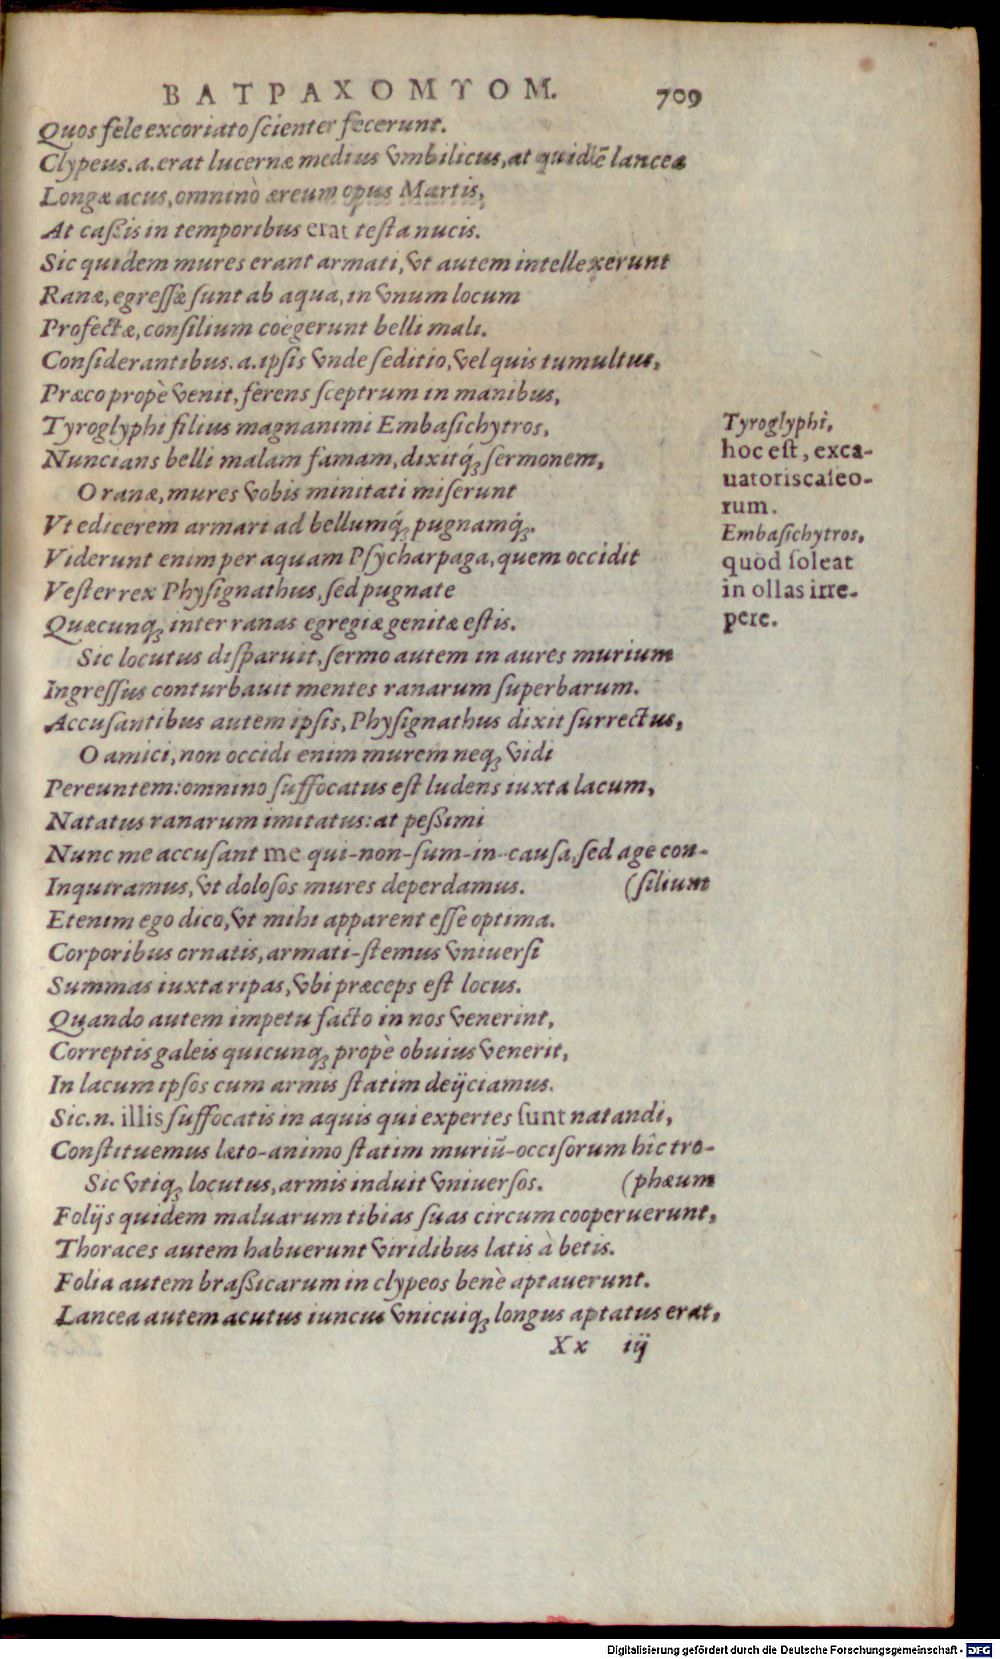 ΒΑΤΡΑΧΟΜΥΟΜ. 709
Quos fele excoriato ſcienter fecerunt.
Clypeus.a.erat lucernæ medius vmbilicus, at quidẽ lancea
Longæ acus, omninò æreum opus Martis,
At caßis in temporibus erat teſta nucis.
Sic quidem mures erant armati, vt autem intellexerunt
Ranæ, egreſſæ ſunt ab aqua, in vnum locum
Profectæ, conſilium coegerunt belli mali.
Conſiderantibus.a.ipſis vnde ſeditio, vel quis tumultus,
Præco propè venit, ferens ſceptrum in manibus,
Tyroglyphi filius magnanimi Embaſichytros,
Nuncians belli malam famam, dixitq́ꝫ ſermonem,
O ranæ, mures vobis minitati miſerunt
Vt edicerem armari ad bellumq́ꝫ pugnamq́ꝫ.
Viderunt enim per aquam Pſycharpaga, quem occidit
Veſter rex Phyſignathus, ſed pugnate
Quæcunqꝫ inter ranas egregiæ genitæ eſtis.
Sic locutus diſparuit, ſermo autem in aures murium
Ingreſſus conturbauit mentes ranarum ſuperbarum.
Accuſantibus autem ipſis, Phyſignathus dixit ſurrectus,
O amici, non occidi enim murem neqꝫ vidi
Pereuntem: omnino ſuffocatus eſt ludens iuxta lacum,
Natatus ranarum imitatus: at peßimi
Nunc me accuſant me qui-non-ſum-in-cauſa, ſed age con-
Inquiramus, vt doloſos mures deperdamus. (ſilium
Etenim ego dico, vt mihi apparent eſſe optima.
Corporibus ornatis, armati-ſtemus vniuerſi
Summas iuxta ripas, vbi præceps eſt locus.
Quando autem impetu facto in nos venerint,
Correptis galeis quicunqꝫ propè obuius venerit,
In lacum ipſos cum armis ſtatim deijciamus.
Sic.n. illis ſuffocatis in aquis qui expertes ſunt natandi,
Conſtituemus læto-animo ſtatim muriũ-occiſorum hîc tro-
Sic vtiqꝫ locutus, armis induit vniuerſos. (phæum
Folijs quidem maluarum tibias ſuas circum cooperuerunt,
Thoraces autem habuerunt viridibus latis à betis.
Folia autem braßicarum in clypeos benè aptauerunt.
Lancea autem acutus iuncus vnicuiqꝫ longus aptatus erat,
Xx iij
Tyroglyphi,
hoc eſt, exca-
uatoris caſeo-
rum.
Embaſichytros,
quòd ſoleat
in ollas irre-
pere.
Digitalisierung gefördert durch die Deutsche Forschungsgemeinschaft - DFG